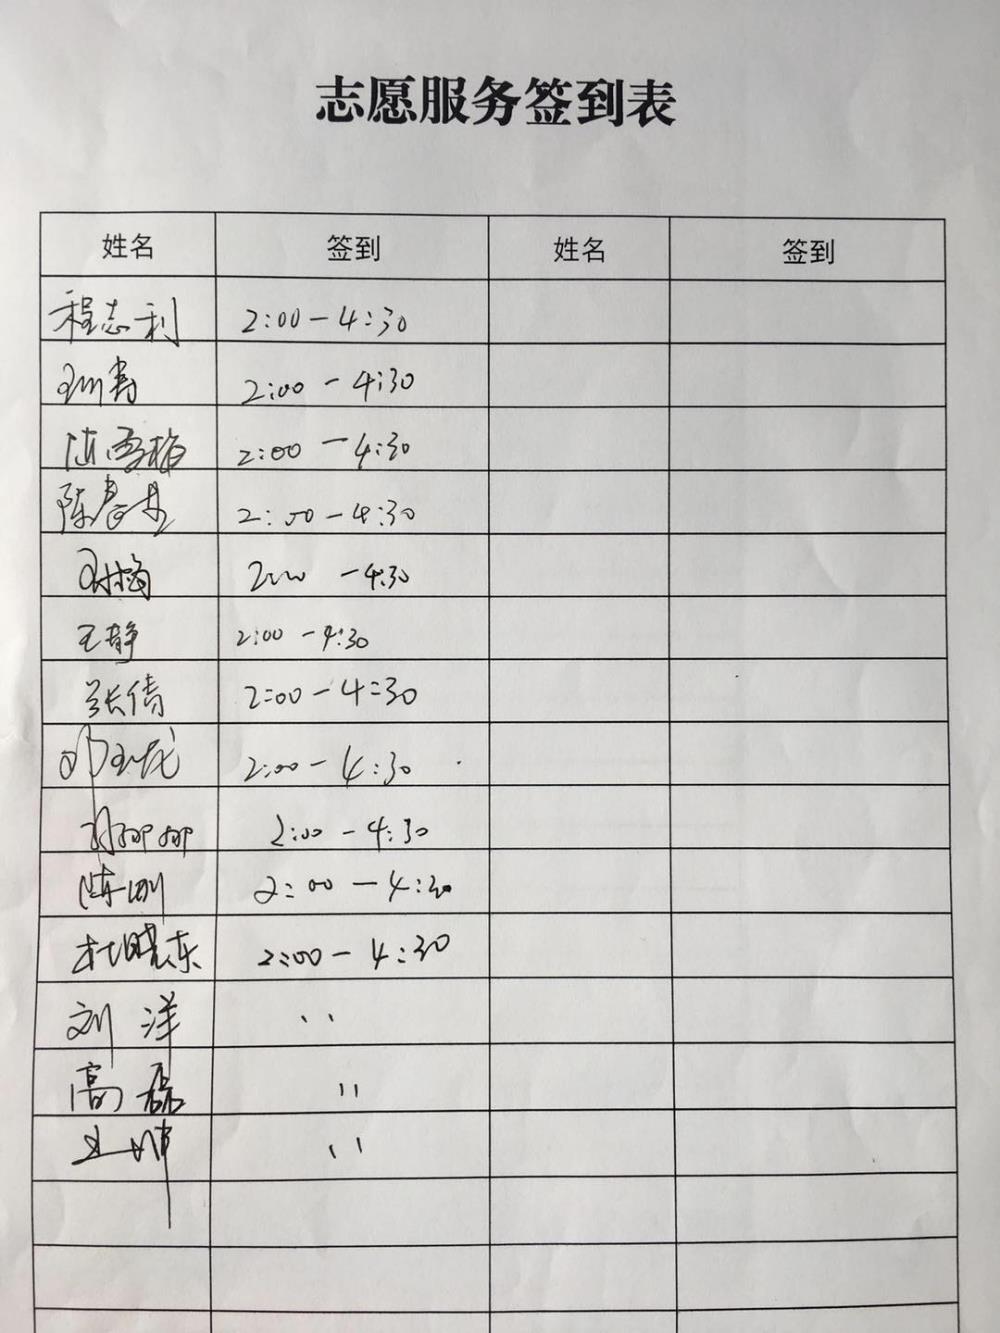 志愿服务签到表
姓名 签到 姓名 签到
程志利 2:00-4:30
2:00-4:30
陈雪梅 2:00-4:30
陈春 2:00-4:30
梅 -4:30
王静 2:00-4:30
张倩 2:00-4:30
邓玉龙 2:00-4:30
娜娜 2:00-4:30
陈刚 2:00-4:30
杜晓东 2:00-4:30
刘洋 〃
高磊 〃
〃